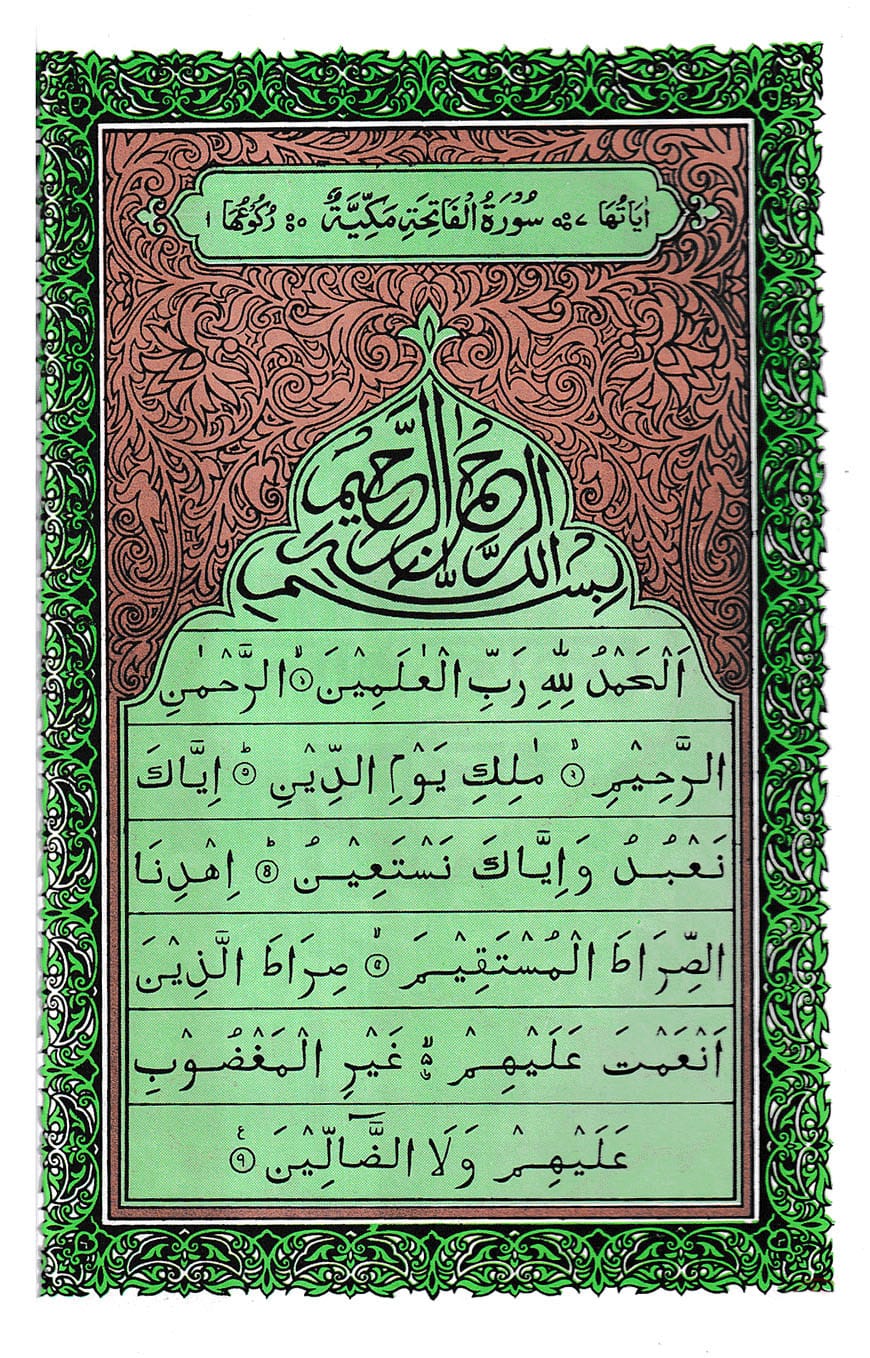 اٰيَاتُهَا ٧ سُوْرَةُ الْفَاتِحَةِ مَكِّيَّةٌ ٥ رُكُوْعُهَا ١
بِسْمِ اللّٰهِ الرَّحْمٰنِ الرَّحِيْمِ
اَلْحَمْدُ لِلّٰهِ رَبِّ الْعٰلَمِيْنَ ۙ‏﴿۱﴾ الرَّحْمٰنِ
الرَّحِيْمِ ۙ‏﴿۲﴾ مٰلِكِ يَوْمِ الدِّيْنِ ؕ‏﴿۳﴾ اِيَّاكَ
نَعْبُدُ وَاِيَّاكَ نَسْتَعِيْنُ ؕ‏﴿۴﴾ اِهْدِنَا
الصِّرَاطَ الْمُسْتَقِيْمَ ۙ‏﴿۵﴾ صِرَاطَ الَّذِيْنَ
اَنْعَمْتَ عَلَيْهِمْ ۙ۵ غَيْرِ الْمَغْضُوْبِ
عَلَيْهِمْ وَلَا الضَّآلِّيْنَ ع